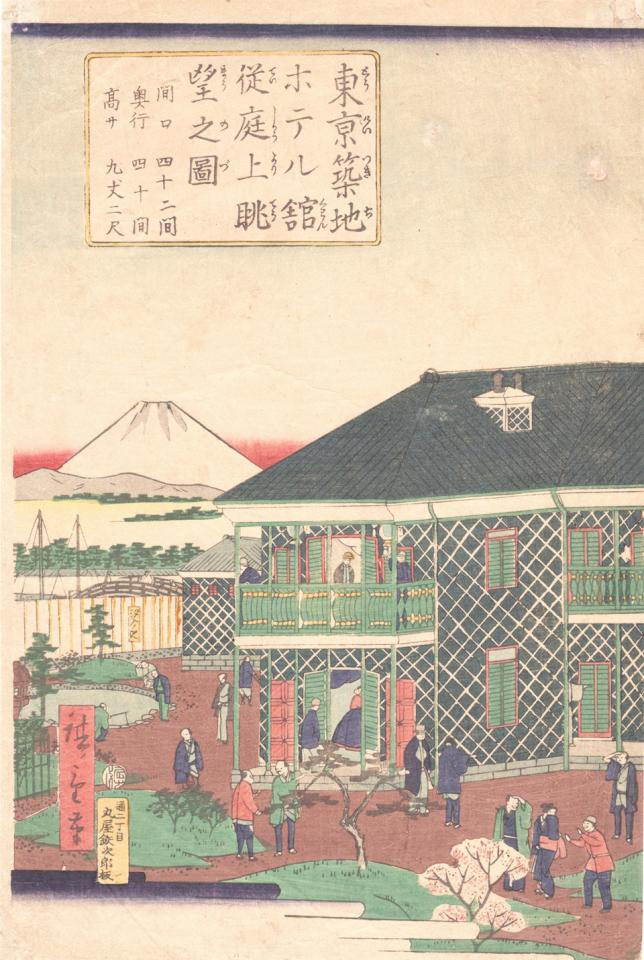 東亰築地
ホテル舘
従庭上眺
望之圖
間口 四十二间
奥行 四十間
高サ 九丈二尺
廣重筆
通二丁目
丸屋鉄次郎板